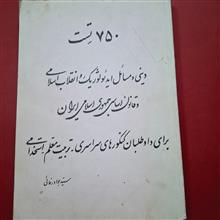 ۷۵۰ تست
دینی و مسائل ایدئولوژیک و انقلاب اسلامی
و قانون اساسی جمهوری اسلامی ایران
برای داوطلبان کنکورهای سراسری - تربیت معلم، استخدامی
سید جواد رضائی